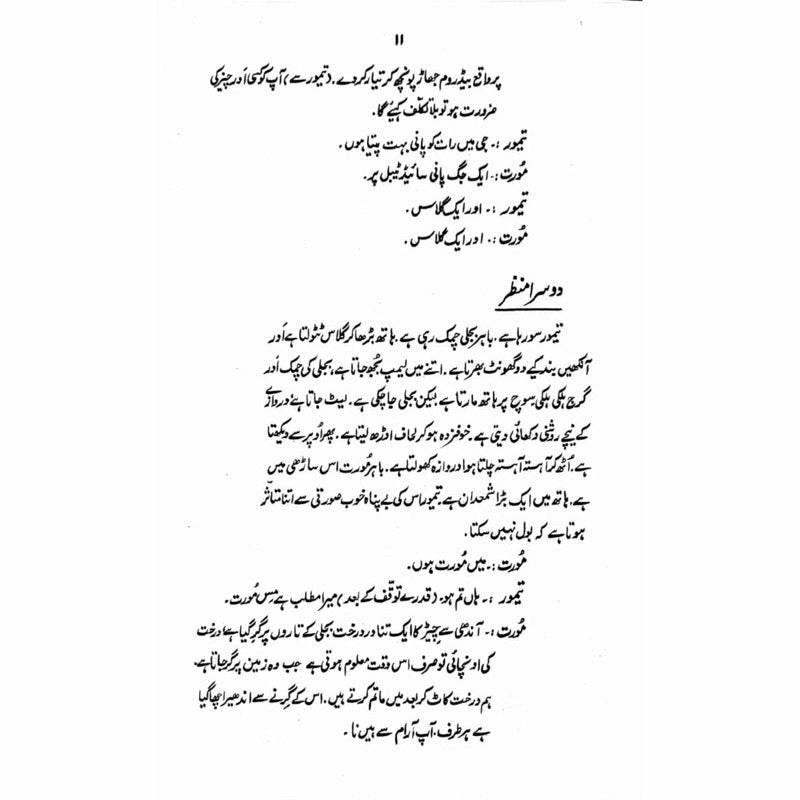 ۱۱
پر واقع بیڈ روم جھاڑ پونچھ کر تیار کر دے۔ (تیمور سے) آپ کو کسی اَور چیز کی
ضرورت ہو تو بلا تکلّف کہیئے گا۔
تیمور :۔ جی میں رات کو پانی بہت پیتا ہوں۔
مُورت :۔ ایک جگ پانی سائیڈ ٹیبل پر۔
تیمور :۔ اور ایک گلاس۔
مُورت :۔ اور ایک گلاس۔
دوسرا منظر
تیمور سو رہا ہے۔ باہر بجلی چمک رہی ہے۔ ہاتھ بڑھا کر گلاس ٹٹولتا ہے اَور
آنکھیں بند کیے دو گھونٹ بھرتا ہے۔ اتنے میں لیمپ بُجھ جاتا ہے، بجلی کی چمک اَور
گرج ہلکی ہلکی سوِچ پر ہاتھ مارتا ہے لیکن بجلی جا چکی ہے۔ لیٹ جاتا ہے دروازے
کے نیچے روشنی دکھائی دیتی ہے۔ خوفزدہ ہو کر لحاف اوڑھ لیتا ہے۔ پھر اُوپر سے دیکھتا
ہے۔ اُٹھ کر آہستہ آہستہ چلتا ہوا دروازہ کھولتا ہے۔ باہر مُورت اس ساڑھی میں
ہے۔ ہاتھ میں ایک بڑا شمعدان ہے۔ تیمور اس کی بے پناہ خوب صورتی سے اتنا متاثّر
ہوتا ہے کہ بول نہیں سکتا۔
مُورت :۔ میں مُورت ہوں۔
تیمور :۔ ہاں تم ہو۔ (قدرے توقّف کے بعد) میرا مطلب ہے مِس مُورت۔
مُورت :۔ آندھی سے چیڑ کا ایک تناور درخت بجلی کے تاروں پر گر گیا ہے۔ درخت
کی اونچائی تو صرف اس وقت معلوم ہوتی ہے جب وہ زمین پر گر جاتا ہے۔
ہم درخت کاٹ کر بعد میں ماتم کرتے ہیں۔ اس کے گرنے سے اندھیرا چھا گیا
ہے ہر طرف۔ آپ آرام سے ہیں نا۔